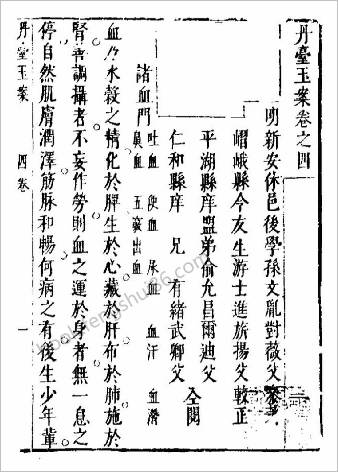 丹臺玉案卷之四
明新安休邑後學孫文胤對薇父
嵋峨縣令友生游士進旂揚父較正
平湖縣庠盟弟俞允昌爾迪父
仁和縣庠 兄 有緒武卿父 仝閱
諸血門
吐血 便血 尿血 血汗 血滑
鼻血 五竅出血
血乃水穀之精化於脾生於心藏於肝布於肺施於
腎善調攝者不妄作勞則血之運於身者無一息之
停自然肌膚潤澤筋脉和暢何病之有後生少年輩
丹臺玉案 四卷 一